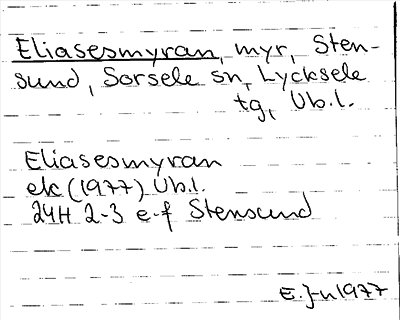 Eliasesmyran, myr, Sten-
sund, Sorsele sn, Lycksele
tg, Vb.l.
Eliasesmyran
ek (1977) Vb.l.
24H 2-3 e-f Stensund
E. J-n 1977